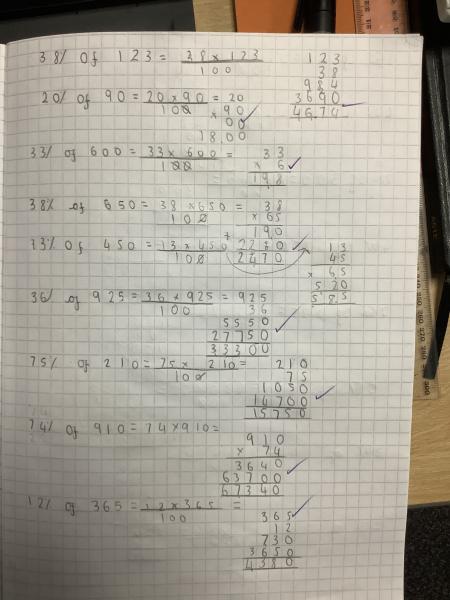 38% of 123 = 38 x 123 / 100
123
38
984
3690
46.74
20% of 90 = 20 x 90 / 100 = 20
x 90
00
18.00
33% of 600 = 33 x 600 / 100 = 33
x 6
198
38% of 650 = 38 x 650 / 100 = 38
x 65
190
+ 2280
2470
13% of 450 = 13 x 450 / 100
13
45
x 65
520
585
36% of 925 = 36 x 925 / 100 = 925
36
5550
27750
33300
75% of 210 = 75 x 210 / 100 = 210
75
1050
14700
15750
74% of 910 = 74 x 910 =
910
x 74
3640
63700
67340
12% of 365 = 12 x 365 / 100 =
365
12
730
3650
4380